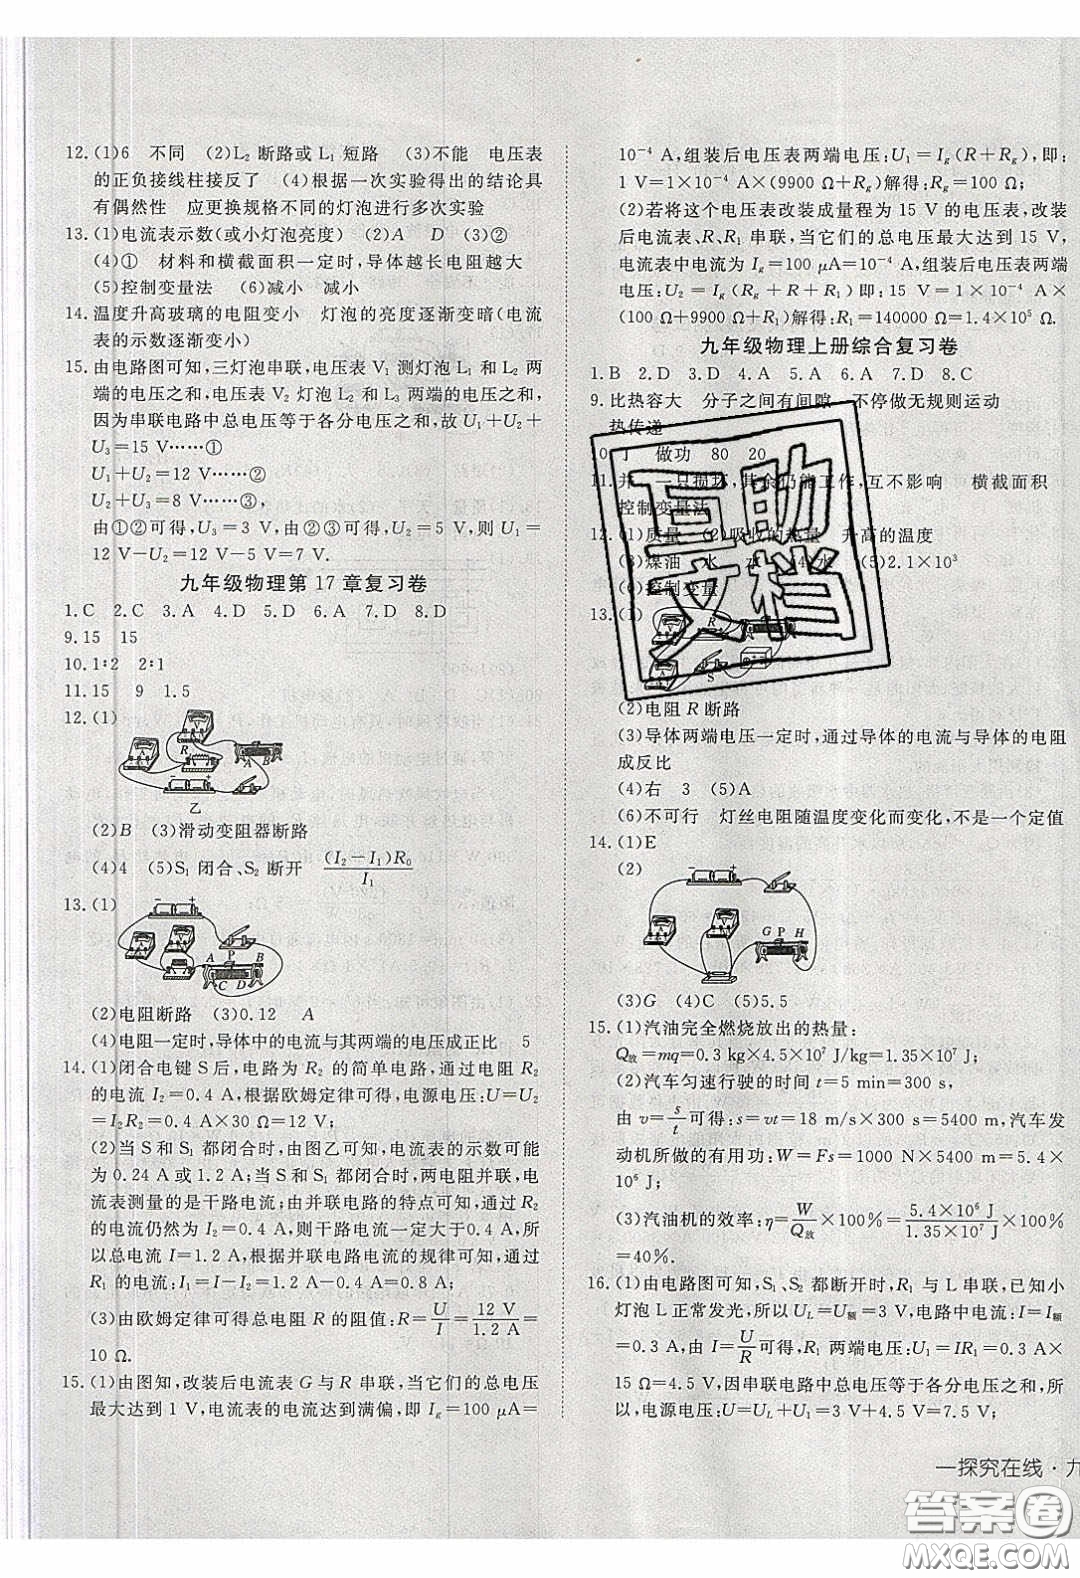 12.(1)6　不同　(2)L₂ 断路或 L₁ 短路　(3)不能　电压表
的正负接线柱接反了　(4)根据一次实验得出的结论具
有偶然性　应更换规格不同的灯泡进行多次实验
13.(1)电流表示数(或小灯泡亮度)　(2)A　D　(3)②
(4)①　材料和横截面积一定时,导体越长电阻越大
(5)控制变量法　(6)减小　减小
14.温度升高玻璃的电阻变小　灯泡的亮度逐渐变暗(电流
表的示数逐渐变小)
15.由电路图可知,三灯泡串联,电压表 V₁ 测灯泡 L₁ 和 L₂ 两
端的电压之和,电压表 V₂ 灯泡 L₂ 和 L₃ 两端的电压之和,
因为串联电路中总电压等于各分电压之和,故 U₁+U₂+
U₃=15 V……①
U₁+U₂=12 V……②
U₂+U₃=8 V……③,
由①②可得,U₃=3 V,由①③可得,U₂=5 V,则 U₁=
12 V-U₂=12 V-5 V=7 V.
九年级物理第 17 章复习卷
1.C　2.C　3.A　4.D　5.D　6.D　7.D　8.D
9.15　15
10.1∶2　2∶1
11.15　9　1.5
12.(1)
R₁
A B
乙
(2)B　(3)滑动变阻器断路
(4)4　(5)S₁ 闭合、S₂ 断开　(I₂-I₁)R₀/I₁
13.(1)
A P B
C D
(2)电阻断路　(3)0.12　A
(4)电阻一定时,导体中的电流与其两端的电压成正比　5
14.(1)闭合电键 S 后,电路为 R₂ 的简单电路,通过电阻 R₂
的电流 I₂=0.4 A,根据欧姆定律可得,电源电压:U=U₂
=I₂R₂=0.4 A×30 Ω=12 V;
(2)当 S 和 S₁ 都闭合时,由图乙可知,电流表的示数可能
为 0.24 A 或 1.2 A;当 S 和 S₁ 都闭合时,两电阻并联,电
流表测量的是干路电流;由并联电路的特点可知,通过 R₂
的电流仍然为 I₂=0.4 A,则干路电流一定大于 0.4 A,所
以总电流 I=1.2 A,根据并联电路电流的规律可知,通过
R₁ 的电流:I₁=I-I₂=1.2 A-0.4 A=0.8 A;
(3)由欧姆定律可得总电阻 R 的阻值:R=U/I=12 V/1.2 A=
10 Ω.
15.(1)由图知,改装后电流表 G 与 R 串联,当它们的总电压
最大达到 1 V,电流表的电流达到满偏,即 I_g=100 μA=
10⁻⁴ A,组装后电压表两端电压:U₁=I_g(R+R_g),即:
1 V=1×10⁻⁴ A×(9900 Ω+R_g)解得:R_g=100 Ω;
(2)若将这个电压表改装成量程为 15 V 的电压表,改装
后电流表、R、R₁ 串联,当它们的总电压最大达到 15 V,
电流表中电流为 I_g=100 μA=10⁻⁴ A,组装后电压表两端
电压:U₂=I_g(R_g+R+R₁),即:15 V=1×10⁻⁴ A×
(100 Ω+9900 Ω+R₁)解得:R₁=140000 Ω=1.4×10⁵ Ω.
九年级物理上册综合复习卷
1.B　2.D　3.D　4.A　5.A　6.A　7.D　8.C
9.比热容大　分子之间有间隙　不停做无规则运动
热传递
10.丁　做功　80　20
11.并　一只损坏,其余仍能工作,互不影响　横截面积
控制变量法
12.(1)质量　(2)吸收的热量　升高的温度
(3)煤油　水　水　(4)水　(5)2.1×10³
(6)控制变量
13.(1)
R
S
(2)电阻 R 断路
(3)导体两端电压一定时,通过导体的电流与导体的电阻
成反比
(4)右　3　(5)A
(6)不可行　灯丝电阻随温度变化而变化,不是一个定值
14.(1)E
(2)
G P H
(3)G　(4)C　(5)5.5
15.(1)汽油完全燃烧放出的热量:
Q放=mq=0.3 kg×4.5×10⁷ J/kg=1.35×10⁷ J;
(2)汽车匀速行驶的时间 t=5 min=300 s,
由 v=s/t可得:s=vt=18 m/s×300 s=5400 m,汽车发
动机所做的有用功:W=Fs=1000 N×5400 m=5.4×
10⁶ J;
(3)汽油机的效率:η=W/Q放×100%=5.4×10⁶ J/1.35×10⁷ J×100%
=40%.
16.(1)由电路图可知,S₁、S₂ 都断开时,R₁ 与 L 串联,已知小
灯泡 L 正常发光,所以 U_L=U额=3 V,电路中电流:I=I额
=0.3 A,由 I=U/R可得,R₁ 两端电压:U₁=IR₁=0.3 A×
15 Ω=4.5 V,因串联电路中总电压等于各分电压之和,所
以,电源电压:U=U_L+U₁=3 V+4.5 V=7.5 V;
一探究在线·九
互助文档
答案圈
MXQE.COM